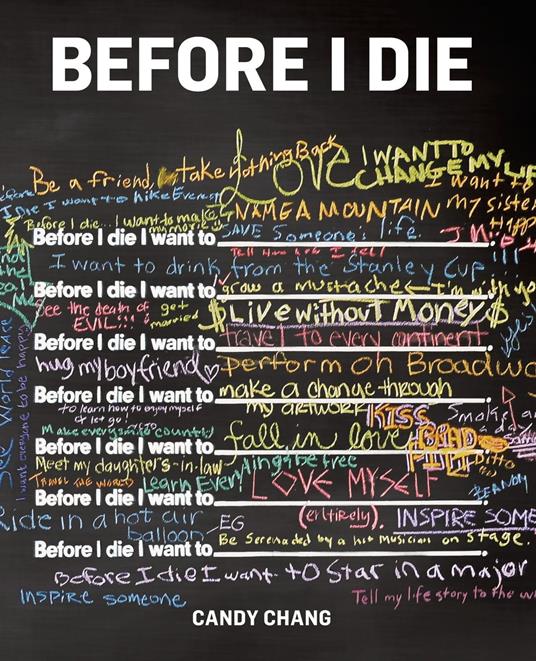 BEFORE I DIE
Be a friend, take nothing Back
LOVE
I WANT TO
CHANGE MY LIFE
I want to
my sister
Before I die I want to hike Everest
NAME A MOUNTAIN
Before I die... I want to make
my movie
Before I die I want to SAVE Someone's life.
I want to drink from the Stanley Cup!!!
Before I die I want to grow a mustache ← I'm with you
See the death of
EVIL!!!
get
married
$ Live without Money $
Before I die I want to travel to every continent.
yes!
See World Peace
I want everyone to be happy
hug my boyfriend ♡
perform on Broadway
Before I die I want to make a change through.
my ARTWORK
to learn how to enjoy myself
& let go!
KISS
BRAD
PITT
Make every smile count!
Before I die I want to fall in love
Ditto
Meet my daughter's-in-law
TRAVEL THE WORLD
Learn Everything
be free
LOVE MYSELF
Before I die I want to
(entirely).
Ride in a hot air
balloon
EG
INSPIRE SOME
Be serenaded by a hit musician on stage.
Before I die I want to
Before I die I want to star in a major
INSPIRE SomeonE
Tell my life story to the
CANDY CHANG